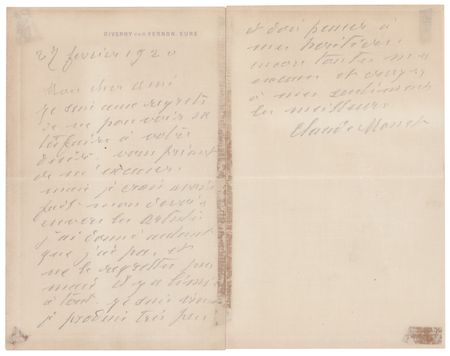 GIVERNY PAR VERNON, EURE
27 février 1920
Mon cher ami
Je suis aux regrets
de ne pouvoir sa
tisfaire à votre
désir. vous priant
de m'excuser
mais je crois avoir
fait mon devoir
envers les artistes
j'ai donné autant
que j'ai pu, et
ne le regrette pas
mais il y a limite
à tout. je suis
je produis très peu
et dois penser à
mes héritiers.
encore toutes mes
excuses et croyez
à mes sentiments
les meilleurs
Claude Monet